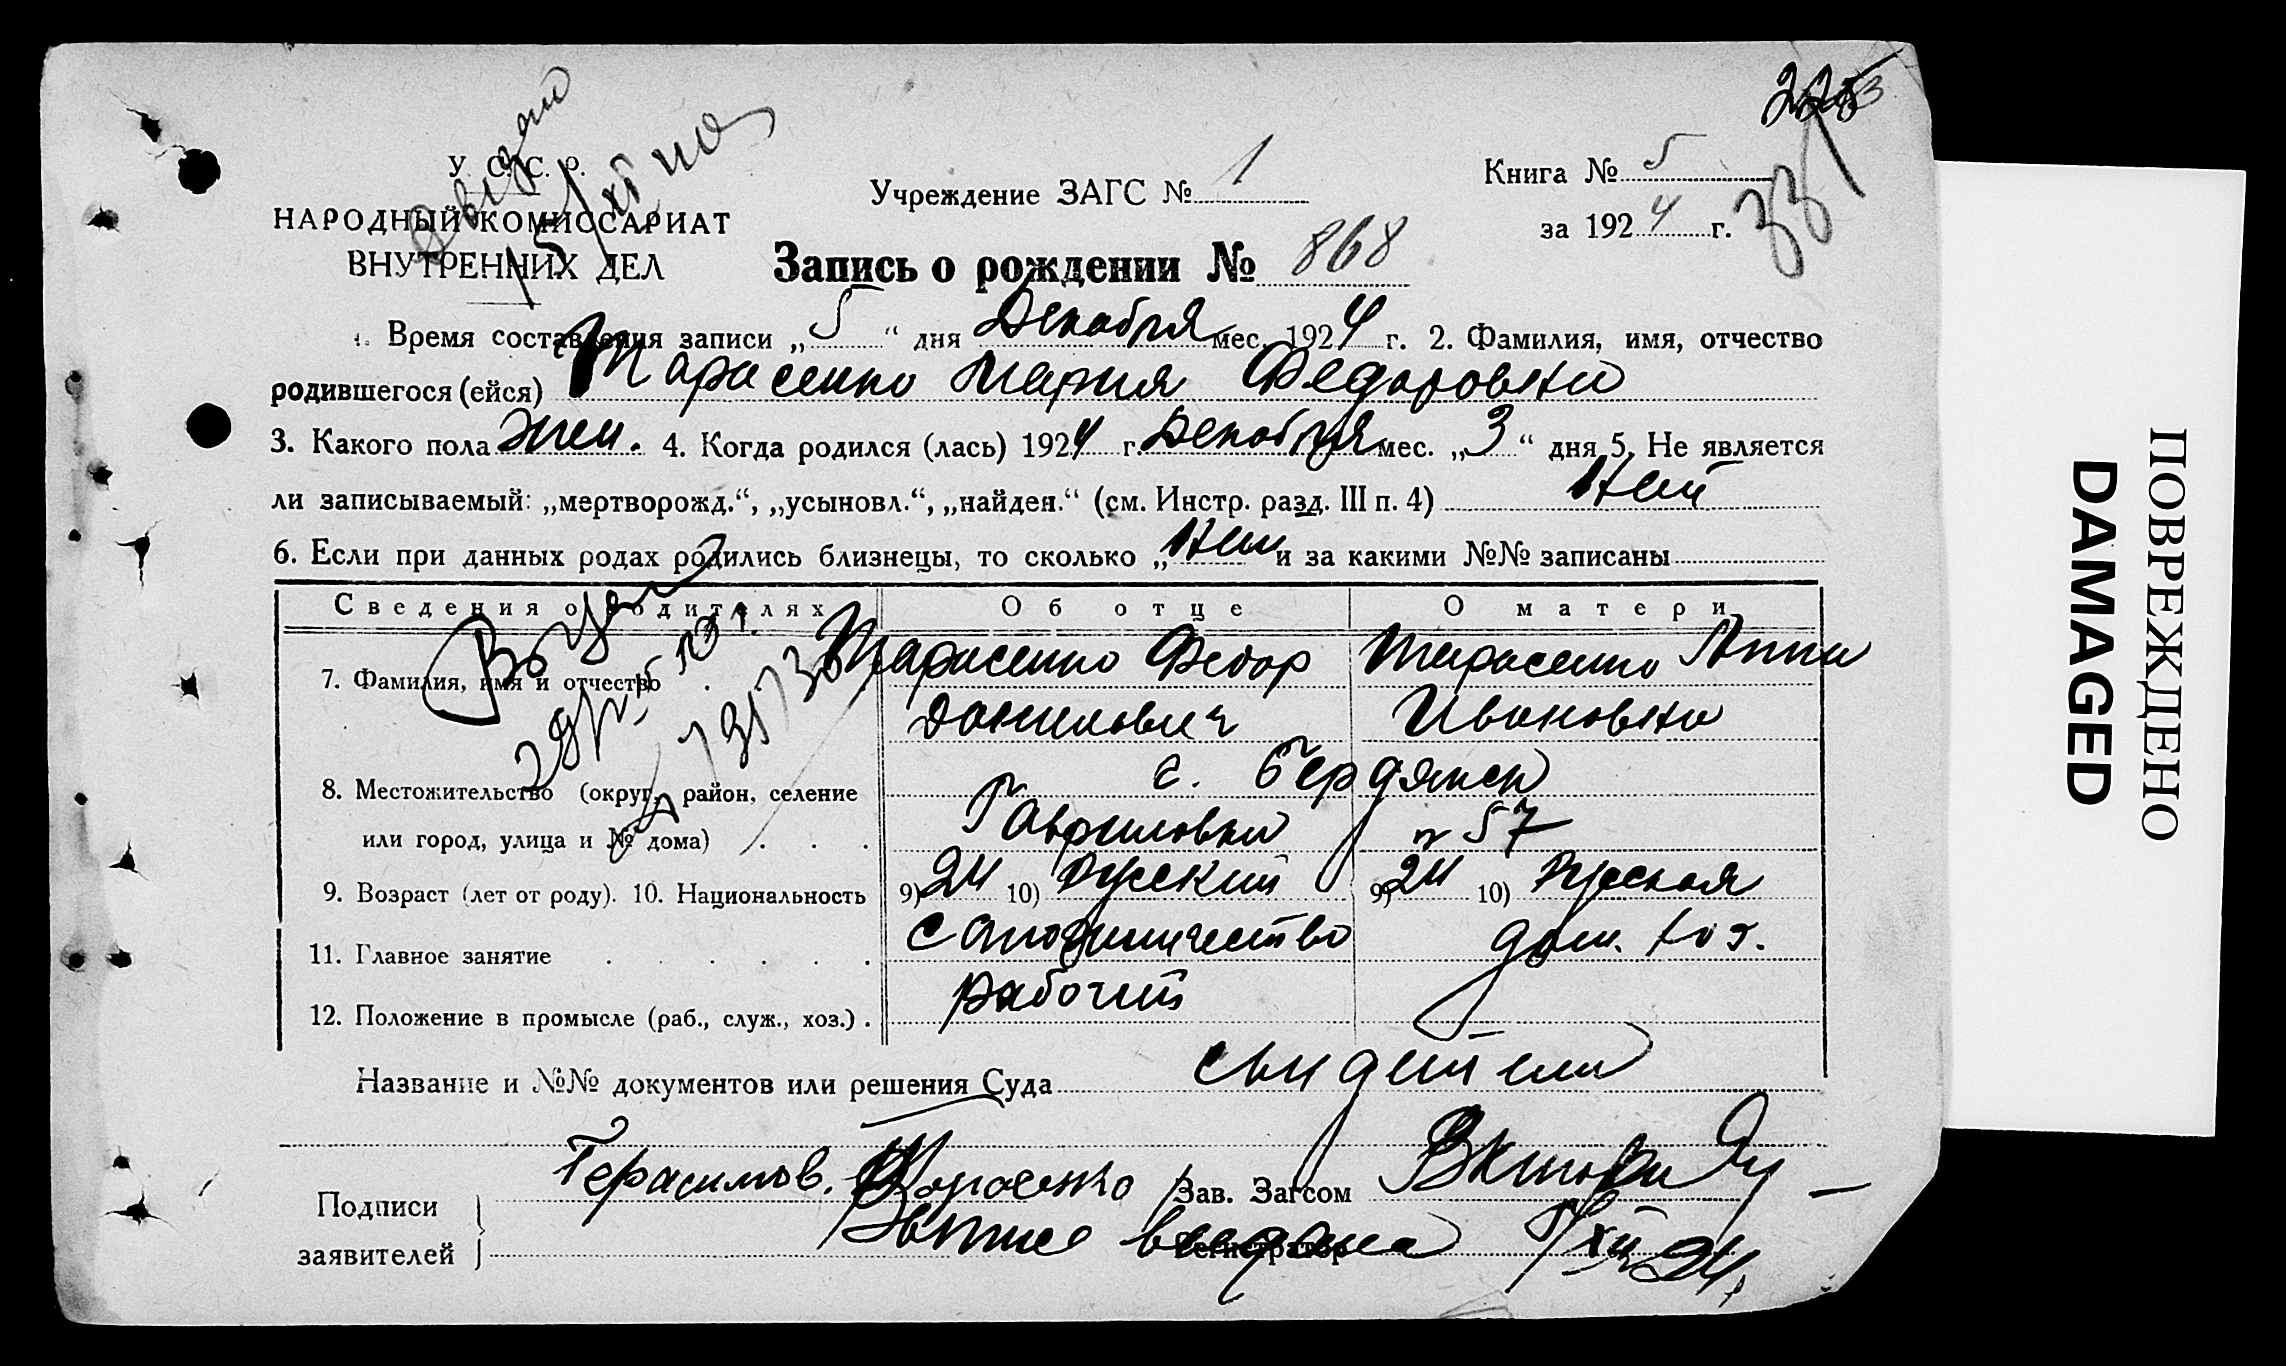 У. С. С. Р.
НАРОДНЫЙ КОМИССАРИАТ
ВНУТРЕННИХ ДЕЛ
Учреждение ЗАГС № 1
Книга № 5
за 1924 г.
331
Запись о рождении № 868
1. Время составления записи „5“ дня Декабря мес. 1924 г. 2. Фамилия, имя, отчество
родившегося (ейся) Тарасенко Мария Федоровна
3. Какого пола жен. 4. Когда родился (лась) 1924 г. Декабря мес. „3“ дня 5. Не является
ли записываемый: „мертворожд.“, „усыновл.“, „найден.“ (см. Инстр. разд. III п. 4) Нет
6. Если при данных родах родились близнецы, то сколько „Нет и за какими №№ записаны
Сведения о родителях Об отце О матери
7. Фамилия, имя и отчество Тарасенко Федор Тарасенко Анна
Данилович Ивановна
8. Местожительство (округ, район, селение г. Бердянск
или город, улица и № дома) Гавриловка № 57
9. Возраст (лет от роду). 10. Национальность 9) 24 10) Русский 9) 24 10) Русская
11. Главное занятие сапожничество дом. хоз.
12. Положение в промысле (раб., служ., хоз.) рабочий
Название и №№ документов или решения Суда свидетели
Герасимов. Тарасенко Зав. Загсом
Подписи
заявителей
Регистратор
5/XII 24
ПОВРЕЖДЕНО
DAMAGED